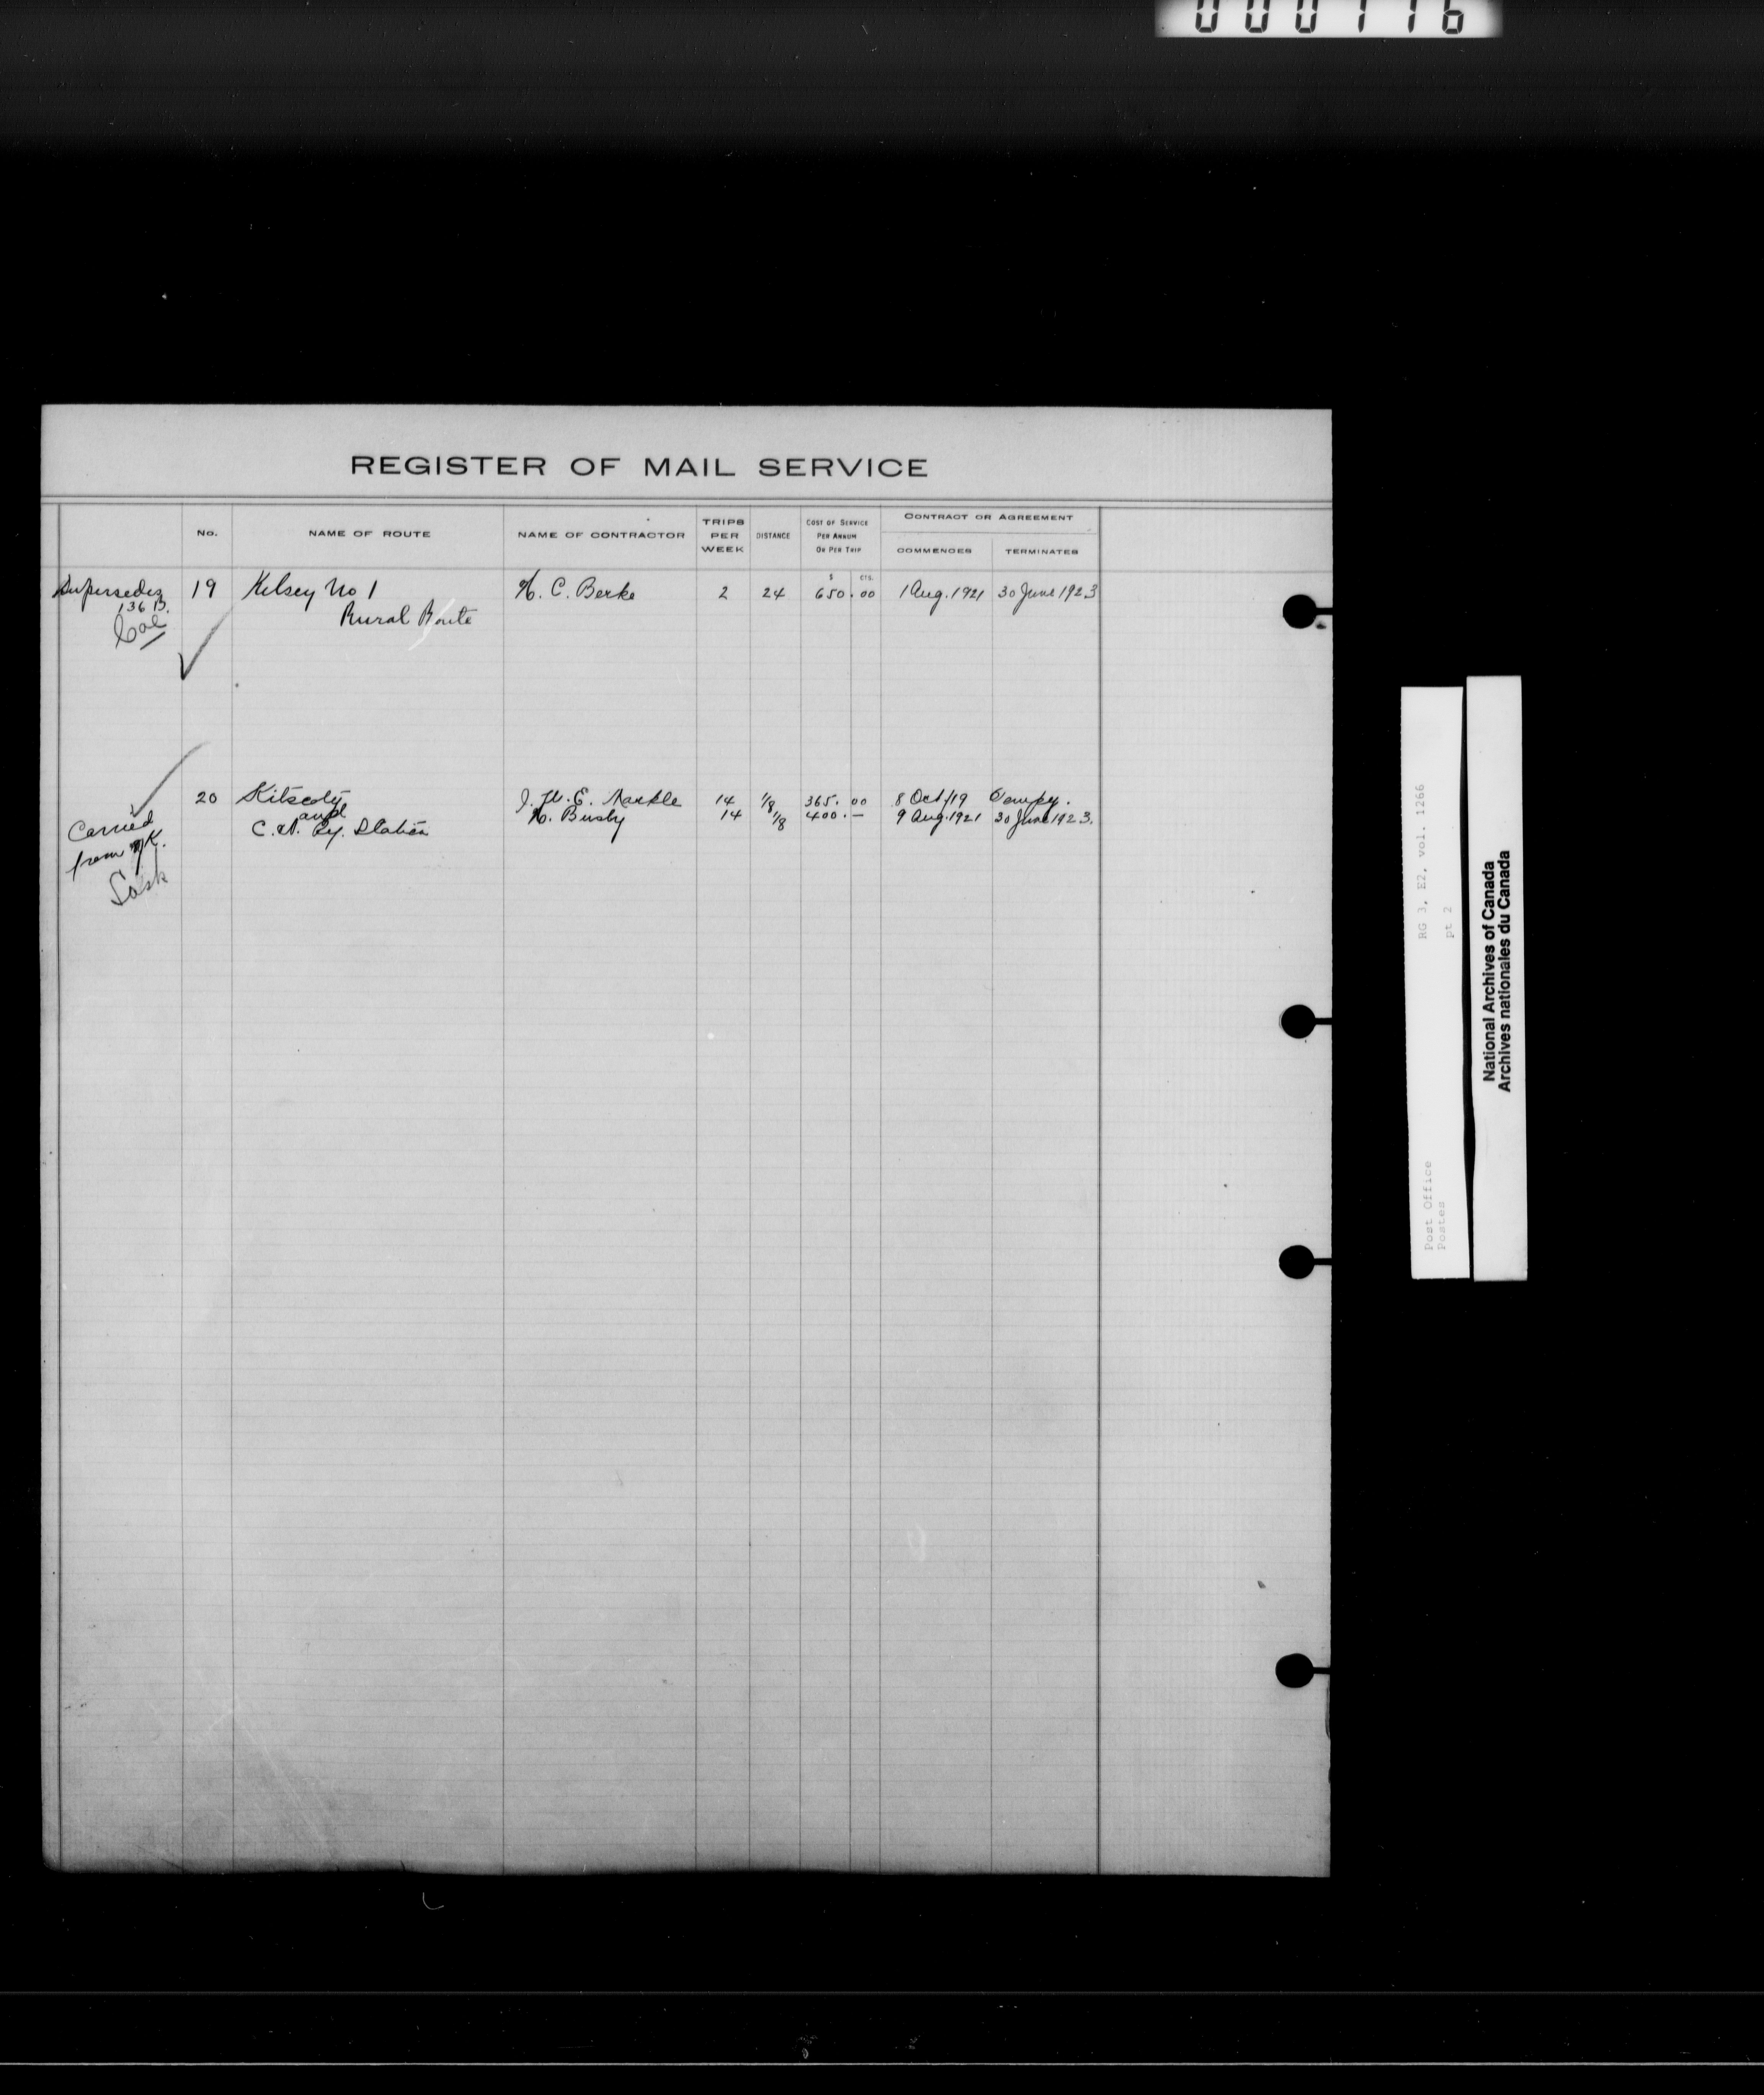 000116
REGISTER OF MAIL SERVICE
No.
NAME OF ROUTE
NAME OF CONTRACTOR
TRIPS
PER
WEEK
DISTANCE
COST OF SERVICE
PER ANNUM
OR PER TRIP
CONTRACT OR AGREEMENT
COMMENCES
TERMINATES
$ CTS.
Supersedes 19 Kelsey No 1 H. C. Berke 2 24 650.00 1 Aug. 1921 30 June 1923
136 B. Rural Route
Cal
20 Kitscoty J. W. E. Markle 14 1/8 365.00 8 Oct/19 Tempy.
and H. Busby 14 1/8 400.— 9 Aug. 1921 30 June 1923.
C.N. Ry. Station
Carried
from K.
Sask
RG 3, E2, vol. 1266
pt 2
Post Office
Postes
National Archives of Canada
Archives nationales du Canada